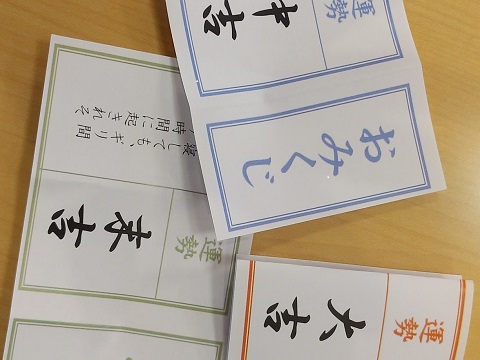 運勢
中吉
おみくじ
運勢
末吉
しても、ギリ間
時間に起きれそ
運勢
大吉